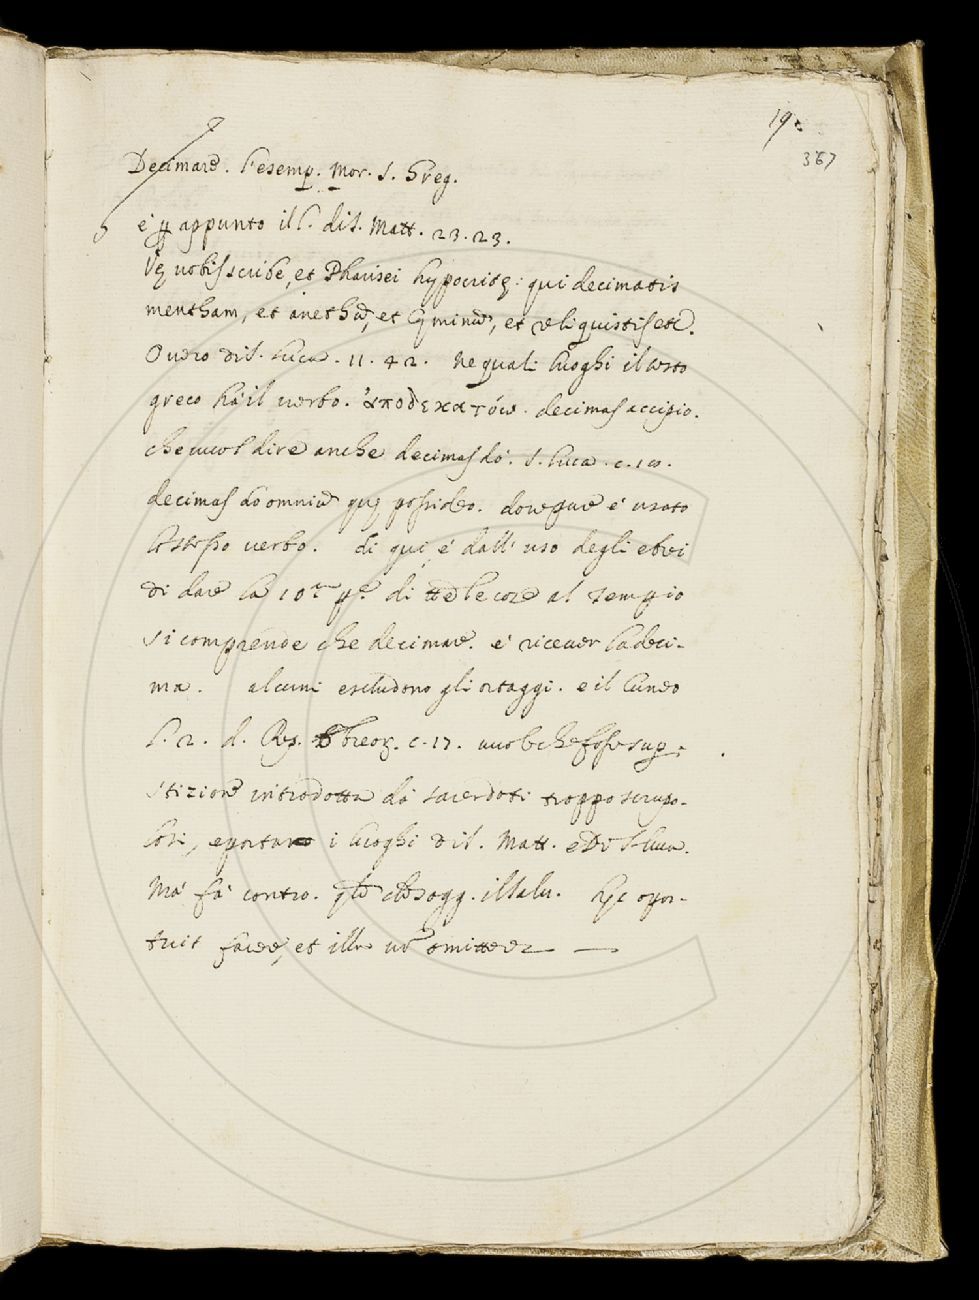 19.
367
Decimare. l'esemp. Mor. S. Greg.
è appunto il l. di S. Matt. 23.23.
Vę vobis scribę, et Pharisei hypocritę: qui decimatis
mentham, et anethũ, et Cyminũ, et reliquistis etc.
Overo di S. Luca. 11. 42. Ne quali luoghi il testo
greco hà il verbo. ἀποδεκατόω. decimas accipio.
che vuol dire anche decimas do. S. Luca. c. 18.
decimas do omniũ quę possideo. dove è usato
lo stesso verbo. di qui è dall' uso degli ebrei
di dare la 10.ma pe. di tte le cose al Tempio
si comprende che decimare. è ricever la deci-
ma. alcuni escludono gli ortaggi. e il Cuneo
l. 2. d. Rep. hebreor. c. 17. vuole che fosse sup.
stizione introdotta da sacerdoti troppo scrupo-
losi, e portano i luoghi di S. Matt. e di S. Luca.
Mà fà contro. sogg. il Salu. hęc opor-
tuit facere, et illa nõ omittere